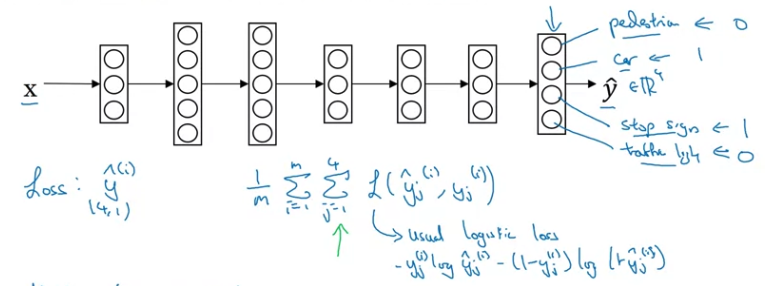 pedestrian ← 0
car ← 1
x
ŷ ∈ℝ⁴
stop sign ← 1
traffic light ← 0
Loss: ŷ^(i)
(4,1)
1/m Σ_{i=1}^{m} Σ_{j=1}^{4} ℒ(ŷ_j^(i), y_j^(i))
↳ usual logistic loss
- y_j^(i) log ŷ_j^(i) - (1-y_j^(i)) log (1-ŷ_j^(i))